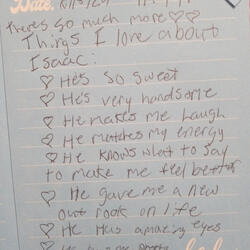 Date:
There's so much more♡♡
Things I love about
Isaac:
♡ He's so sweet
♡ He's very handsome
♡ He makes me laugh
♡ He matches my energy
♡ He knows what to say
to make me feel better
♡ He gave me a new
look on life
♡ He has amazing eyes